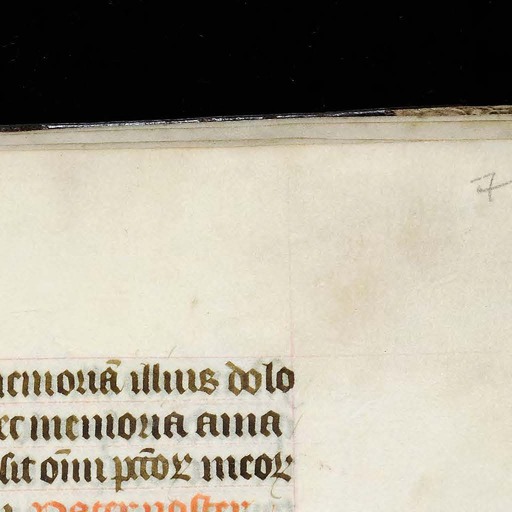 7
memoriā illius dolo
ec memoria ama
sit oīm pctōꝝ meoꝝ
Pater noster